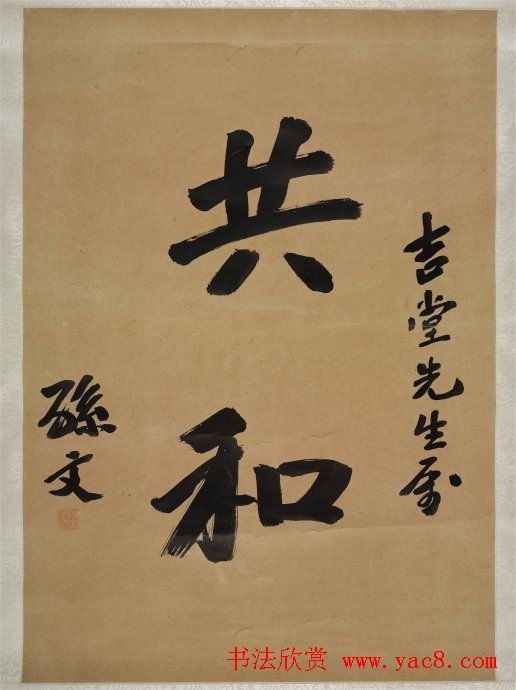 吉堂先生屬
共和
孫文
书法欣赏 www.yac8.com